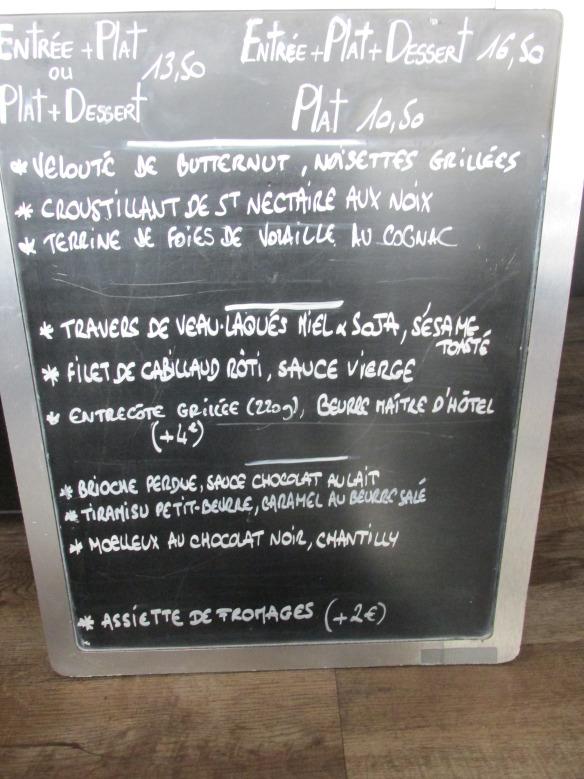 ENTRÉE + PLAT 13,50
OU
PLAT + DESSERT
ENTRÉE + PLAT + DESSERT 16,50
PLAT 10,50
* VELOUTÉ DE BUTTERNUT, NOISETTES GRILLÉES
* CROUSTILLANT DE ST NECTAIRE AUX NOIX
* TERRINE DE FOIES DE VOLAILLE AU COGNAC
* TRAVERS DE VEAU LAQUÉS MIEL & SOJA, SÉSAME
TOASTÉ
* FILET DE CABILLAUD RÔTI, SAUCE VIERGE
* ENTRECÔTE GRILLÉE (220g), BEURRE MAÎTRE D'HÔTEL
(+4€)
* BRIOCHE PERDUE, SAUCE CHOCOLAT AU LAIT
* TIRAMISU PETIT-BEURRE, CARAMEL AU BEURRE SALÉ
* MOELLEUX AU CHOCOLAT NOIR, CHANTILLY
* ASSIETTE DE FROMAGES (+2€)